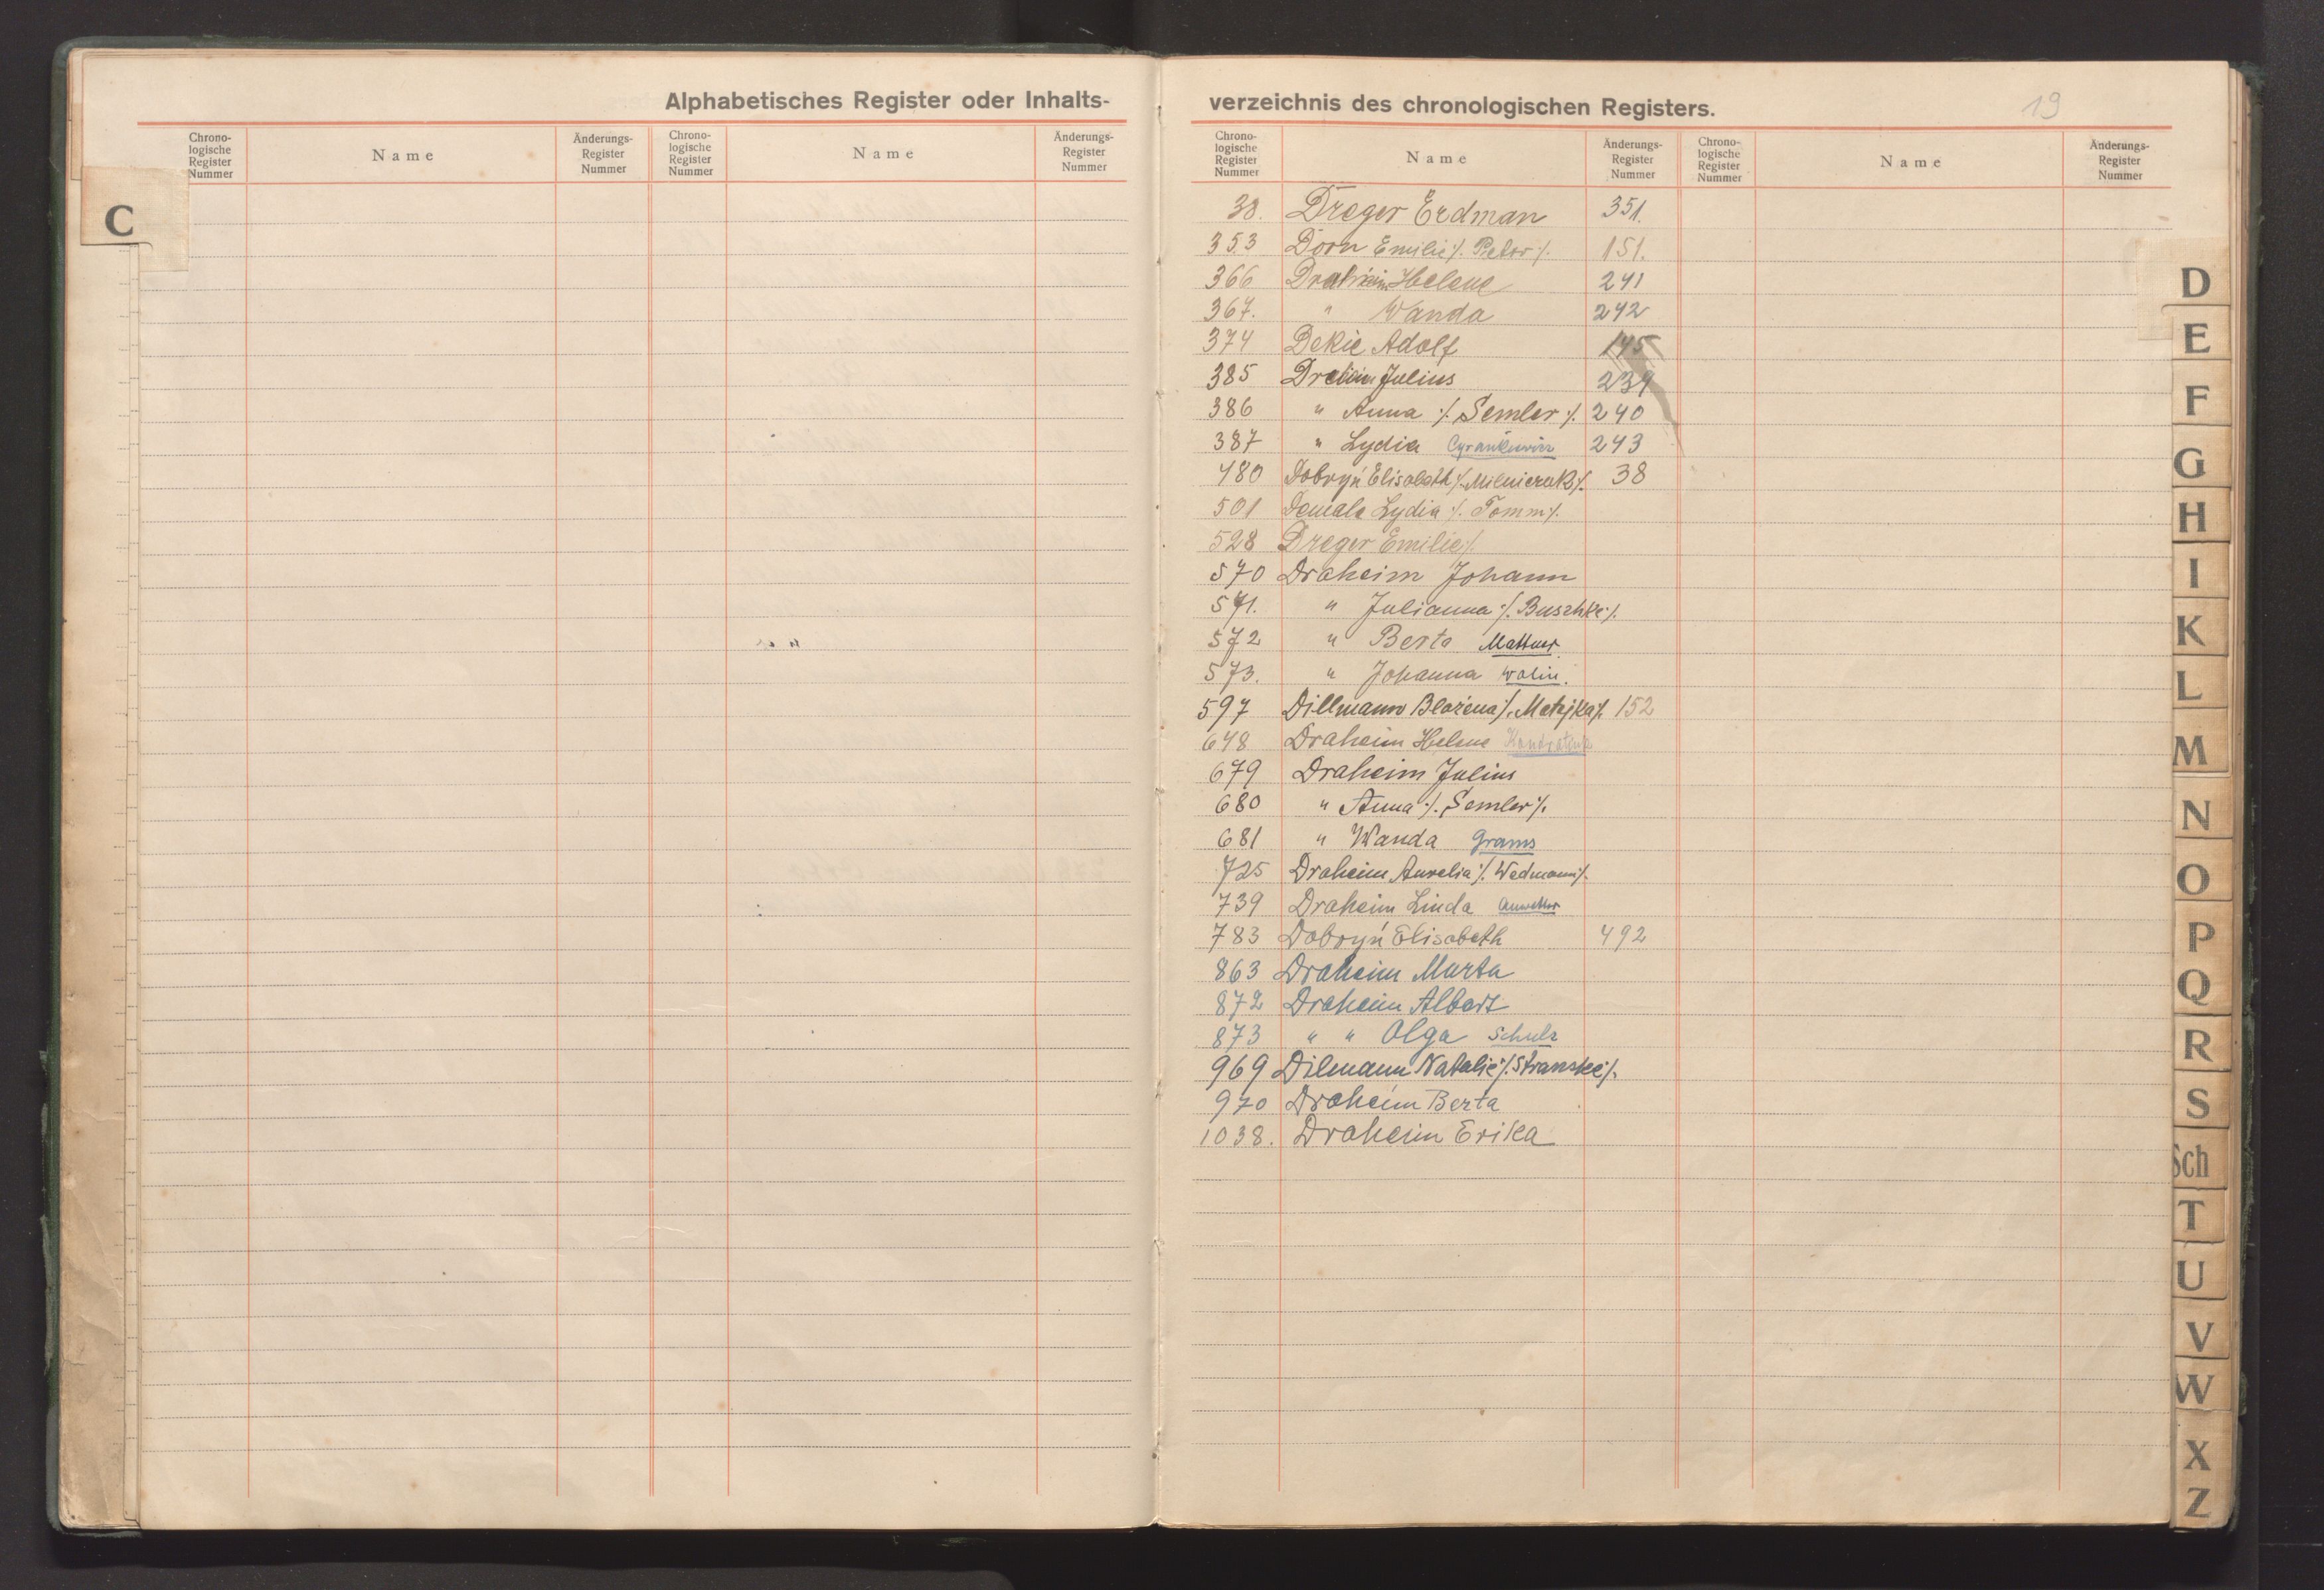 Alphabetisches Register oder Inhalts-
Chrono-
logische
Register
Nummer
Name
Änderungs-
Register
Nummer
Chrono-
logische
Register
Nummer
Name
Änderungs-
Register
Nummer
C
verzeichnis des chronologischen Registers.
19
Chrono-
logische
Register
Nummer
Name
Änderungs-
Register
Nummer
Chrono-
logische
Register
Nummer
Name
Änderungs-
Register
Nummer
38. Dreger Erdman 351.
353 Dorn Emilie :/. Peter :/. 151.
366 Draheim Helene 241
367. " Wanda 242
374 Dekie Adolf 145
385 Draheim Julius 239
386 " Anna :/. Semler :/. 240
387 " Lydia 243
480 Dobryń Elisabeth :/. 38
501 Lydia :/. Tomm :/.
528 Dreger Emilie :/.
570 Draheim Johann
571. " Julianna :/. Buschke :/.
572 " Berta Mattner
573. " Johanna Wolin.
597 Dillmann Blażena :/. Matejka :/. 152
648 Draheim Helene
679 Draheim Julius
680 " Anna :/. Semler :/.
681 " Wanda Grams
725 Draheim Aurelia :/. Wedmann :/.
739 Draheim Linda
783 Dobryń Elisabeth 492
863 Draheim Marta
872 Draheim Albert
873 " " Olga Schulz
969 Dilmann Natalie :/. Stranske :/.
970 Draheim Berta
1038. Draheim Erika
D
E
F
G
H
I
K
L
M
N
O
P
Q
R
S
Sch
T
U
V
W
X
Z